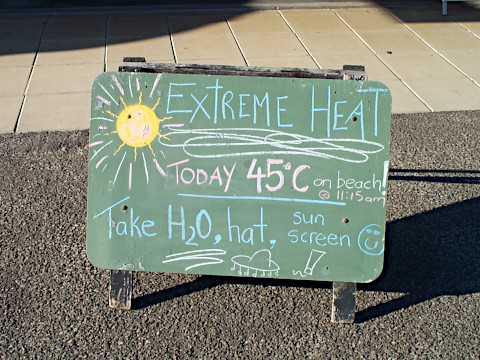 EXTREME HEAT
TODAY 45°C on beach!
@ 11:15am
Take H2O, hat, sun screen